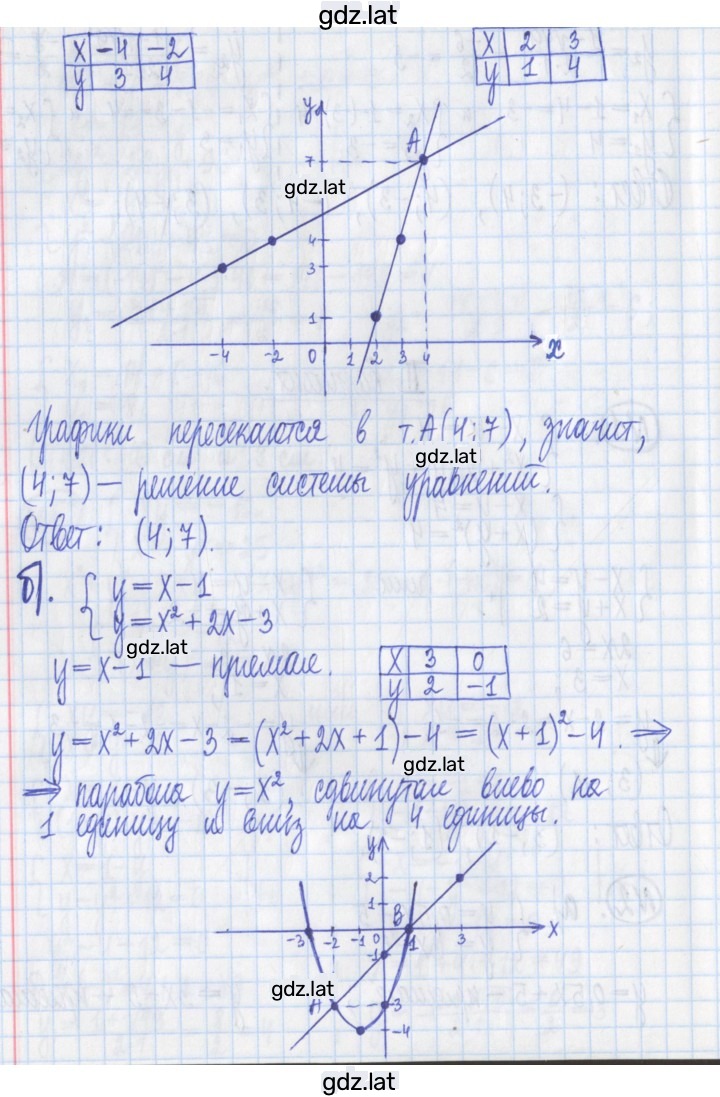 gdz.lat
x -4 -2
y 3 4
x 2 3
y 1 4
y
A
7
gdz.lat
4
3
1
-4 -2 0 1 2 3 4 x
Графики пересекаются в т.A(4;7), значит,
gdz.lat
(4;7) — решение системы уравнений.
Ответ: (4;7).
б). { y = x - 1
y = x² + 2x - 3
gdz.lat
y = x - 1 — прямая.
x 3 0
y 2 -1
y = x² + 2x - 3 = (x² + 2x + 1) - 4 = (x + 1)² - 4. ⇒
gdz.lat
⇒ парабола y = x², сдвинутая влево на
1 единицу и вниз на 4 единицы.
y
2
1
B
-3 -2 -1 0 1 3 x
-1
gdz.lat
A
-3
-4
gdz.lat